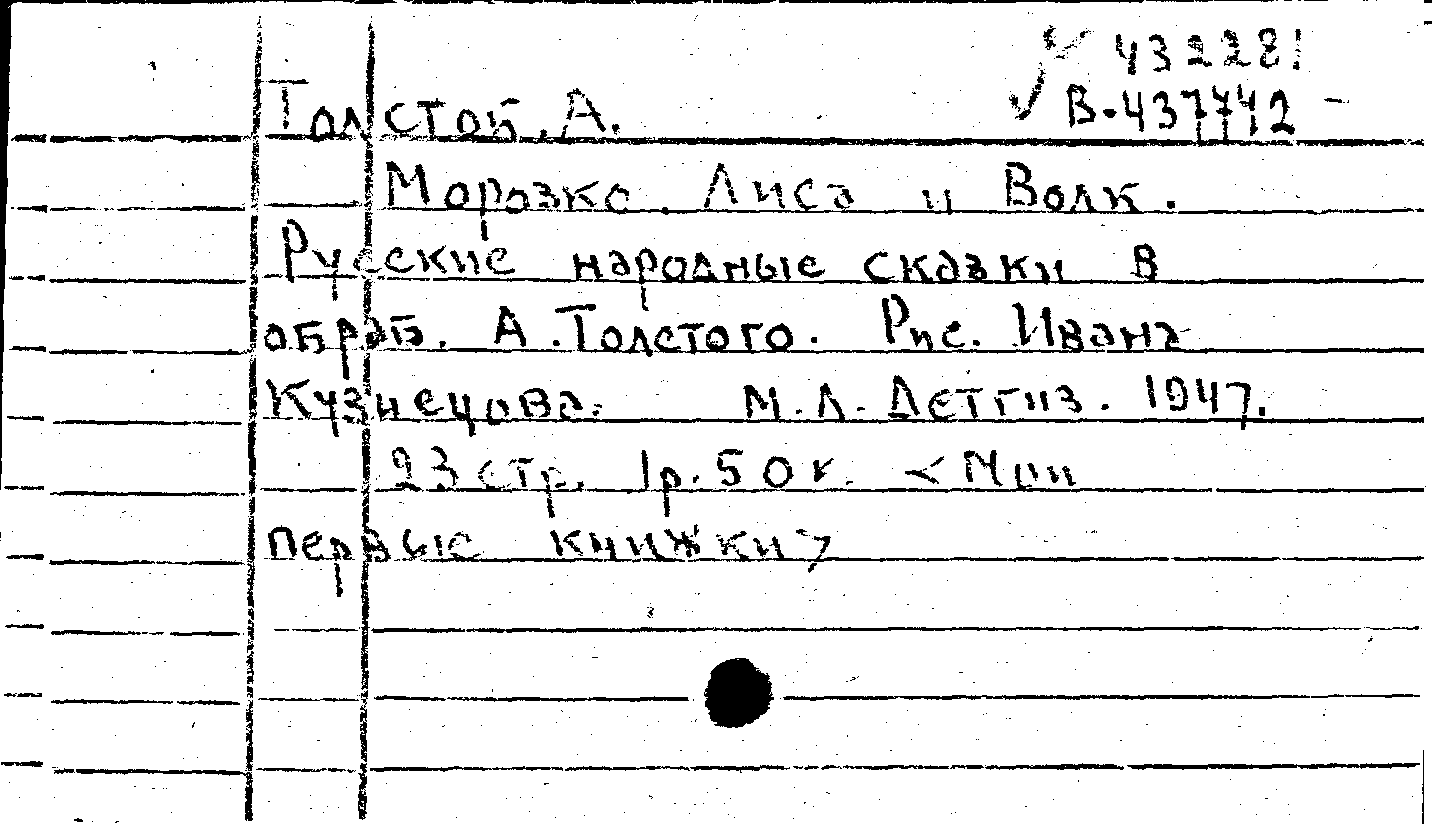 432281
В-437742
Толстой, А.
Морозко. Лиса и Волк.
Русские народные сказки в
обраб. А. Толстого. Рис. Ивана
Кузнецова. М.Л. Детгиз. 1947.
23 стр. 1р. 50к. <Мои
первые книжки>